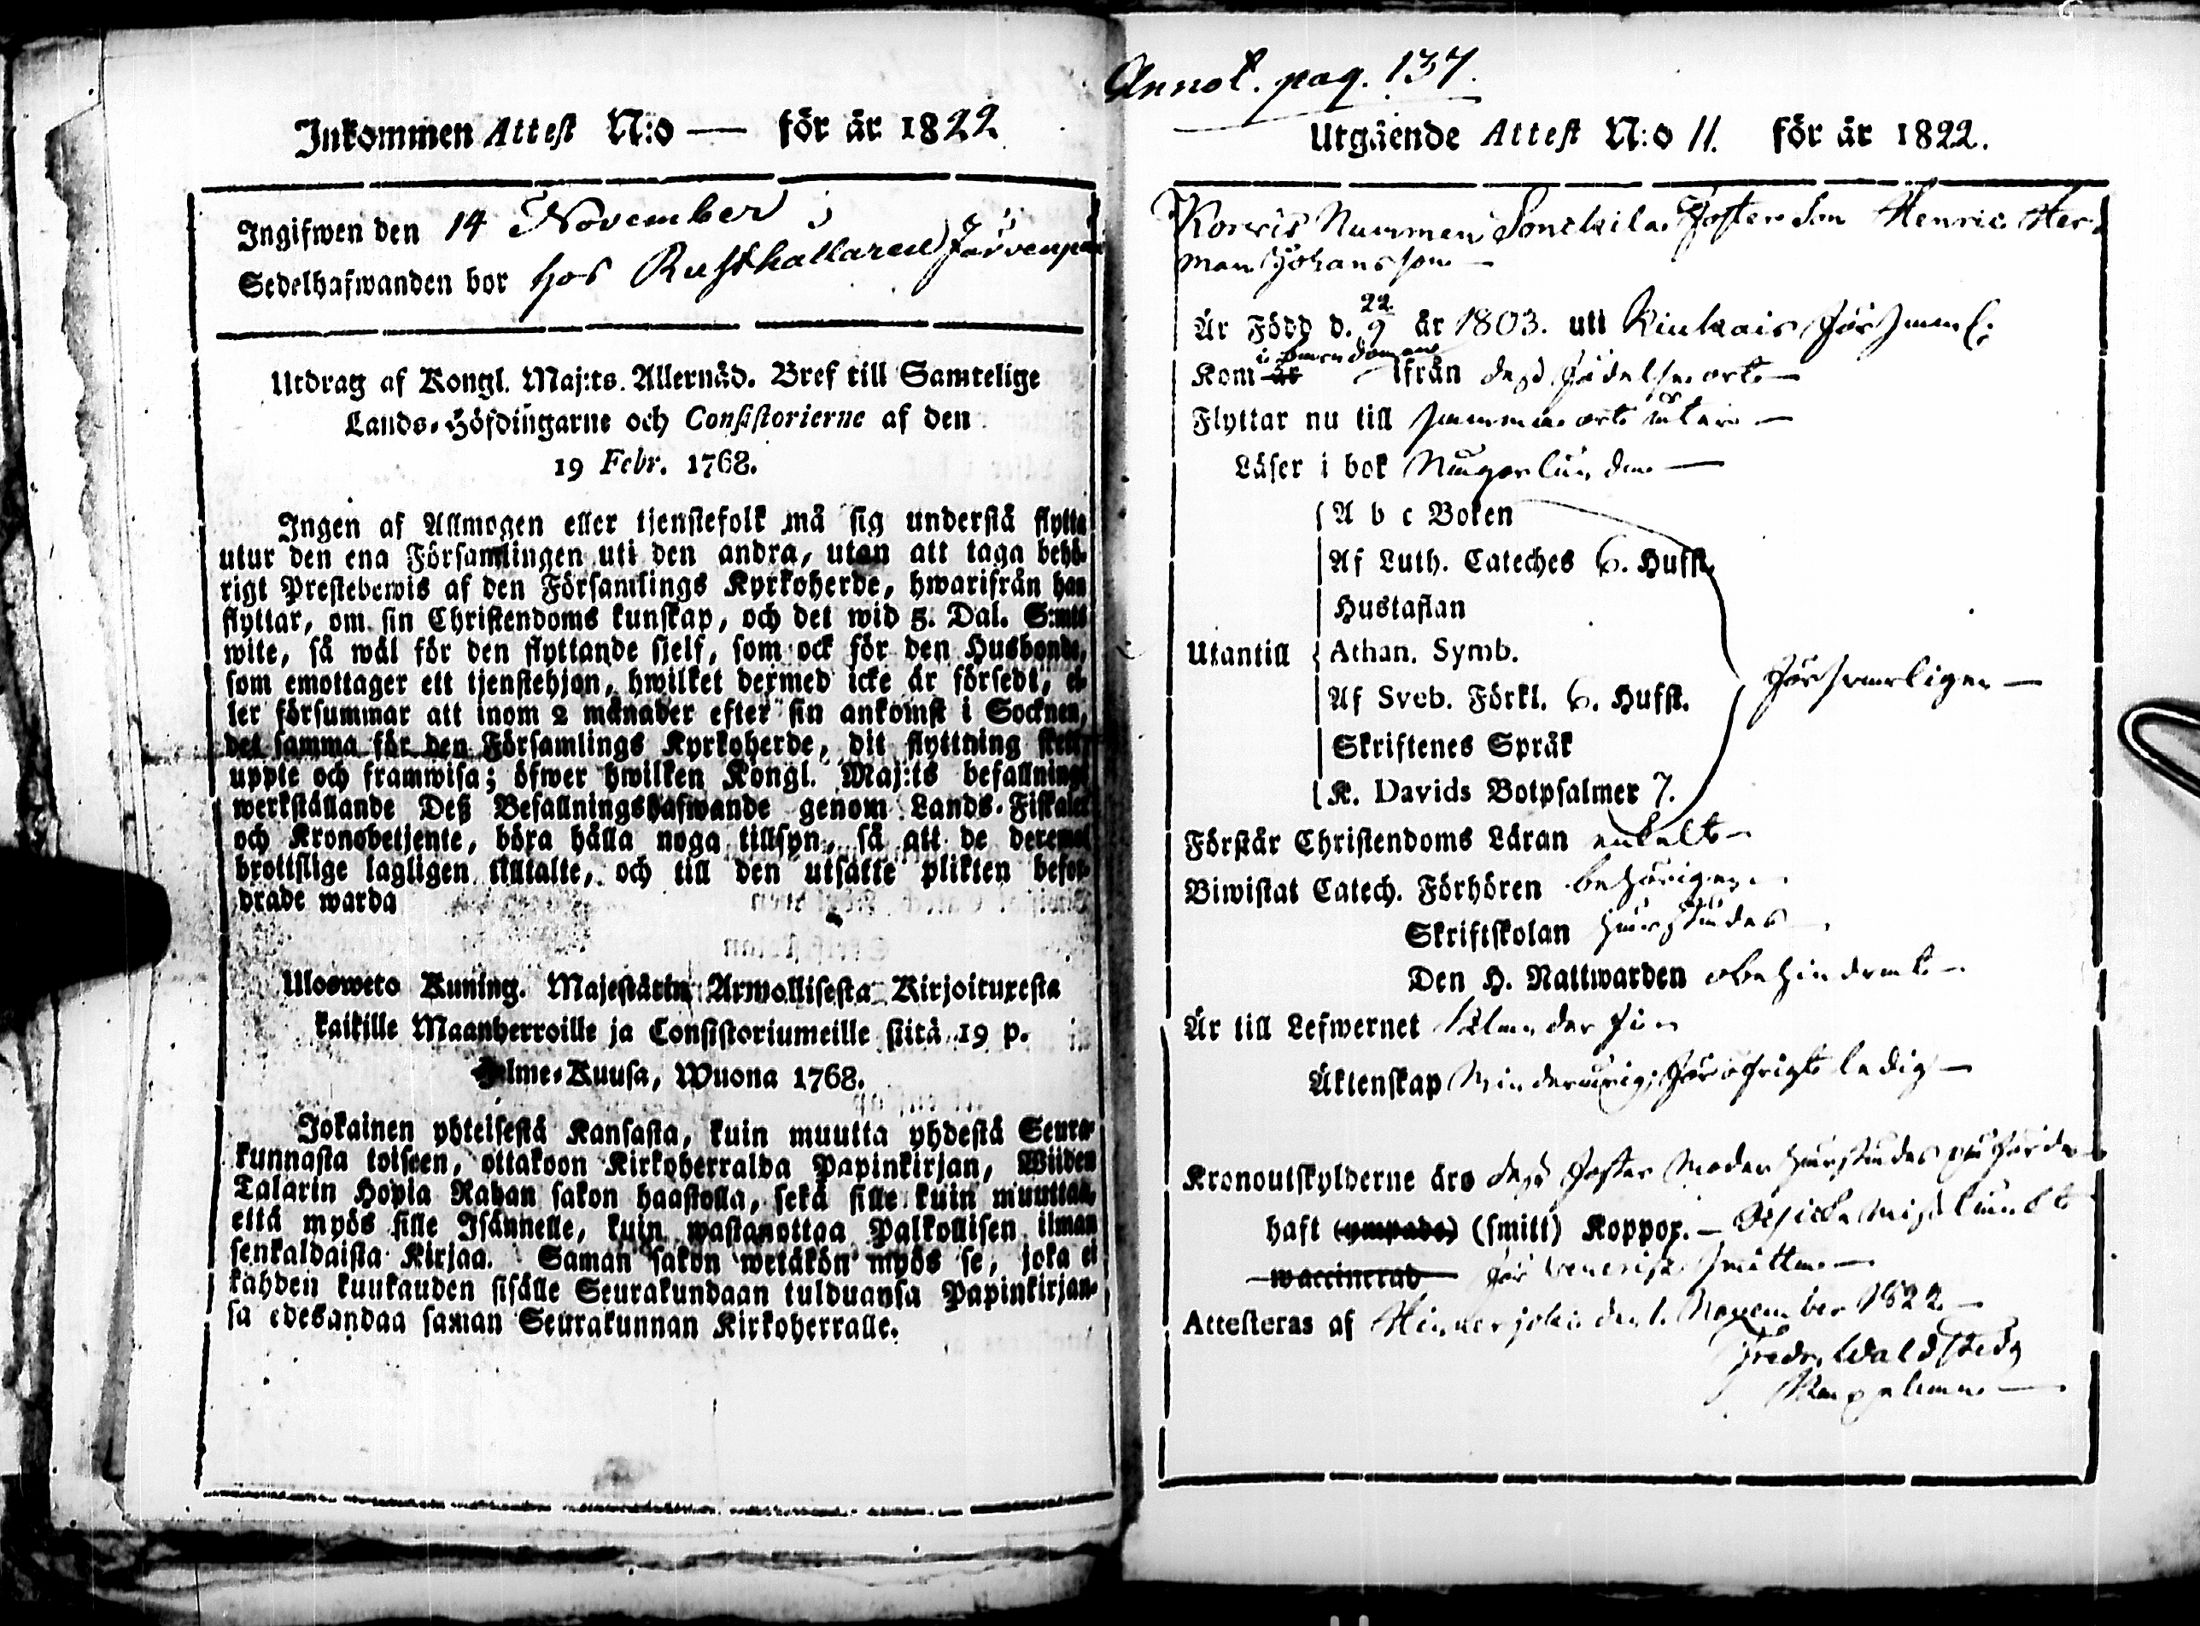 Inkommen Attest N:o — för år 1822
Ingifwen den 14 November
Sedelhafwanden bor hos Rusthållaren Järvenpää
Utdrag af Kongl. Maj:ts. Allernåd. Bref till Samtelige
Lands-Höfdingarne och Consistorierne af den
19 Febr. 1768.
Ingen af Allmogen eller tjenstefolk må sig understå flytta
utur den ena Församlingen uti den andra, utan att taga behö-
rigt Prestebewis af den Församlings Kyrkoherde, hwarifrån han
flyttar, om sin Christendoms kunskap, och det wid 5. Dal. S:mts
wite, så wäl för den flyttande sjelf, som ock för den Husbonde,
som emottager ett tjenstehjon, hwilket dermed icke är försedt, el-
ler försummar att inom 2 månader efter sin ankomst i Socknen,
det samma för den Församlings Kyrkoherde, dit flyttning skett,
uppte och framwisa; öfwer hwilken Kongl. Maj:ts befallnings
werkställande Deß Befallningshafwande genom Lands-Fiskaler
och Kronobetjente, böra hålla noga tillsyn, så att de deremot
brottslige lagligen tilltalte, och till den utsatte plikten befor-
drade warda
Ulosweto Kuning. Majestätin Armollisesta Kirjoituxesta
kaikille Maanherroille ja Consistoriumeille siitä 19 p.
Helme-Kuusa, Wuona 1768.
Jokainen yhteisestä Kansasta, kuin muutta yhdestä Seura-
kunnasta toiseen, ottakoon Kirkoherralda Papinkirjan, Wiiden
Talarin Hopia Rahan sakon haastolla, sekä sille kuin muuttaa,
että myös sille Isännelle, kuin wastanottaa Palkollisen ilman
senkaldaista Kirjaa. Saman sakon wetäkön myös se, joka ei
kahden kuukauden sisälle Seurakundaan tulduansa Papinkirjan-
sa edesandaa saman Seurakunnan Kirkoherralle.
Annot. pag. 137.
Utgående Attest N:o 11. för år 1822.
Korvis Nummen Sonckila Foster Son Henric Her-
man Johansson
Är Född d. 22/9 år 1803. uti Kiukais Församl:
Kom är i barndomen ifrån dess födelse ort
Flyttar nu till samma ort åter
Läser i bok någorlunda
A b c Boken
Af Luth. Cateches 6. Hufst.
Hustaflan
Utantill Athan. Symb.
Af Sveb. Förkl. 6. Hufst. försvarligen
Skriftenes Språk
K. Davids Botpsalmer 7.
Förstår Christendoms Läran enkelt
Biwistat Catech. Förhören behörigen
Skriftskolan hursåledes
Den H. Nattwarden obehindrat
Är till Lefwernet
Äktenskap Minderårig, för öfrigt ledig
Kronoutskylderne äro dess foster Moder
haft (ympade) (smitt) Koppor. — Ej icke misstänkt
waccinerad för venerisk smitta
Attesteras af Hinnerjoki den 1. November 1822
Fredr. Waldstedt
Kapellan